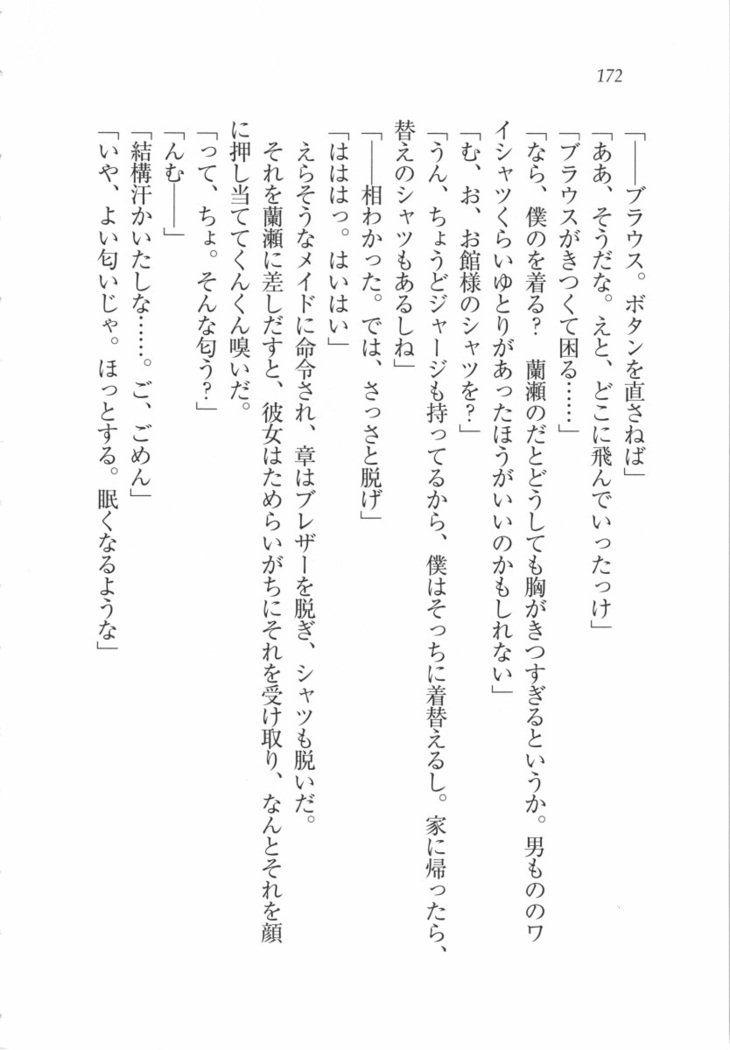 172
「――ブラウス。ボタンを直さねば」
「ああ、そうだな。えと、どこに飛んでいったっけ」
「ブラウスがきつくて困る……」
「なら、僕のを着る？　蘭瀬のだとどうしても胸がきつすぎるというか。男もののワ
イシャツくらいゆとりがあったほうがいいのかもしれない」
「む、お、お館様のシャツを？」
「うん、ちょうどジャージも持ってるから、僕はそっちに着替えるし。家に帰ったら、
替えのシャツもあるしね」
「――相わかった。では、さっさと脱げ」
「はははっ。はいはい」
えらそうなメイドに命令され、章はブレザーを脱ぎ、シャツも脱いだ。
それを蘭瀬に差しだすと、彼女はためらいがちにそれを受け取り、なんとそれを顔
に押し当ててくんくん嗅いだ。
「って、ちょ。そんな匂う？」
「んむ――」
「結構汗かいたしな……。ご、ごめん」
「いや、よい匂いじゃ。ほっとする。眠くなるような」